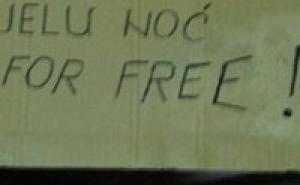 JELU NOĆ
FOR FREE!